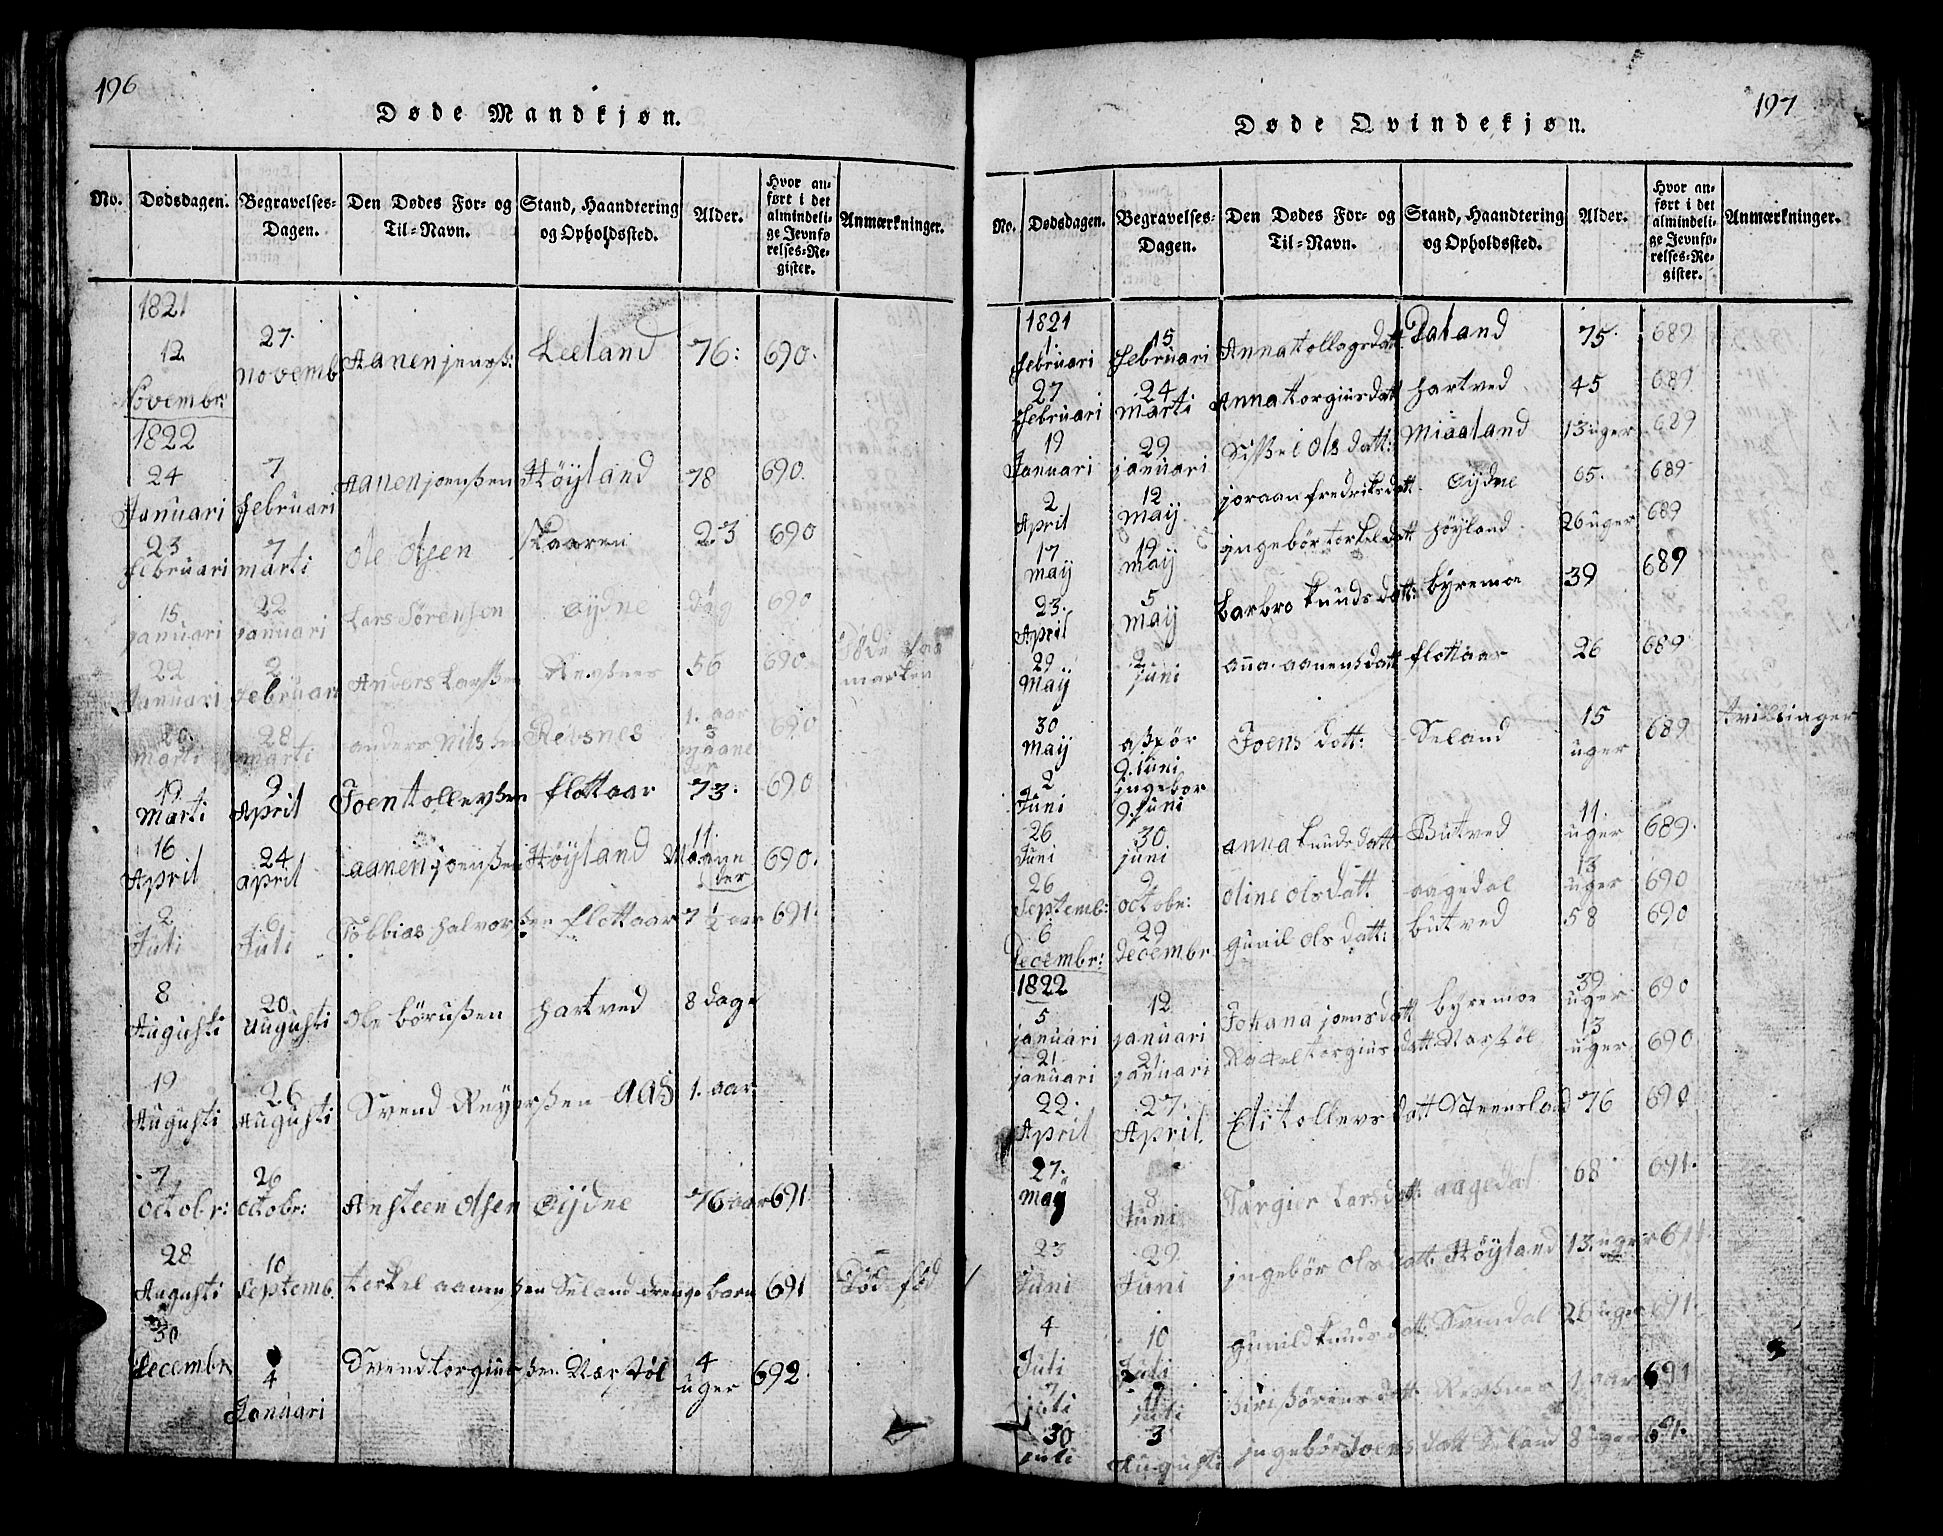 196
Døde Mandkjøn.
No. Dødsdagen. Begravelses-Dagen. Den Dødes For- og Til-Navn. Stand, Haandtering og Opholdssted. Alder. Hvor anført i det almindelige Jevnførelses-Register. Anmærkninger.
1821
12 Novembr: 27 novemb Aanen jensß: Leeland 76: 690.
1822
24 Januari 7 februari Aanen joenßen Höyland 78 690.
23 februari 7 marti ole olsen Skaaren 23 690
15 januari 22 januari Lars Sörensen Eÿdne 1 dag 690
22 Januari 2 februari Anders Larßen Revsnes 56 690
20 marti 28 marti anders Nilsßen Revsnes 1. aar 3 690
19 Marti 9 April Joen tollevßen flottaar 73. 690
16 April 24 april aanen joenßen Höyland 11 690.
2 Juli 6 Juli Tobbias halvorßen flottaar 7 1/2 aar 691.
8 Augusti 20 augusti ole börußen hartved 8 dage
19 Augusti 26 Augusti Svend Reÿerßen aas 1. aar
7 octobr: 26 octobr: Ansteen olsen Eÿdne 76 aar 691
28 Augusti 10 Septemb. terkel aanenßen Seland drenge barn 691 Död fød
30 decembr 4 Januari Svend torgiusßen Nærstöl 4 uger 692.
197
Døde Qvindekjøn.
No. Dødsdagen. Begravelses-Dagen. Den Dødes For- og Til-Navn. Stand, Haandtering og Opholdssted. Alder. Hvor anført i det almindelige Jevnførelses-Register. Anmærkninger.
1821
1 februari 15 februari Anna tollagsdatt Daland 75. 689
27 februari 24 marti Anna torgiusdatt hartved 45 689
19 Januari 29 januari Sißel olsdatt: Miaaland 13 uger 689
2 April 12 maÿ joraan fredriksdatt Eÿdne 65. 689
17 maÿ 19 maÿ jngebör torkeldatt höyland 26 uger 689
23. April 5 maÿ barbro knudsdatt: bÿremoe 39 689
29 Maÿ 2 juni anna aanensdatt flottaar 26 689
30 maÿ aßxör 9. Juni Joens datt: Seland 15 uger 689 tvillinger
2 Juni ingebor 9. Juni
26 Juni 30 juni anna knudsdatt Butved 11. uger 689.
26 Septemb: 9 octobr: oline olsdatt aagedal 13 uger 690
6 decembr: 29 decembr gunil olsdatt: butved 58 690
1822
5 januari 12 januari Johana joensdatt byremoe 39 uger 690
21 januari 21 januari Rakel torgiusdatt Narstöl 13 uger 690
22. April 27. April. Eli tollevsdatt Steensland 76 690
27. maÿ 8 Juni Targier larsdatt: aagedal 68 691.
23 Juni 29 Juni jngebör olsdatt. Höyland 13. uger 691.
4 Juli 10 Juli gunild knudsdatt Svindal 26 uger 691.
7 juli 11 juli siri sörensdatt Revsnes 1. aar 691
30 juli 3 Augusti jngebör Joensdatt Seland 8 uger 691.